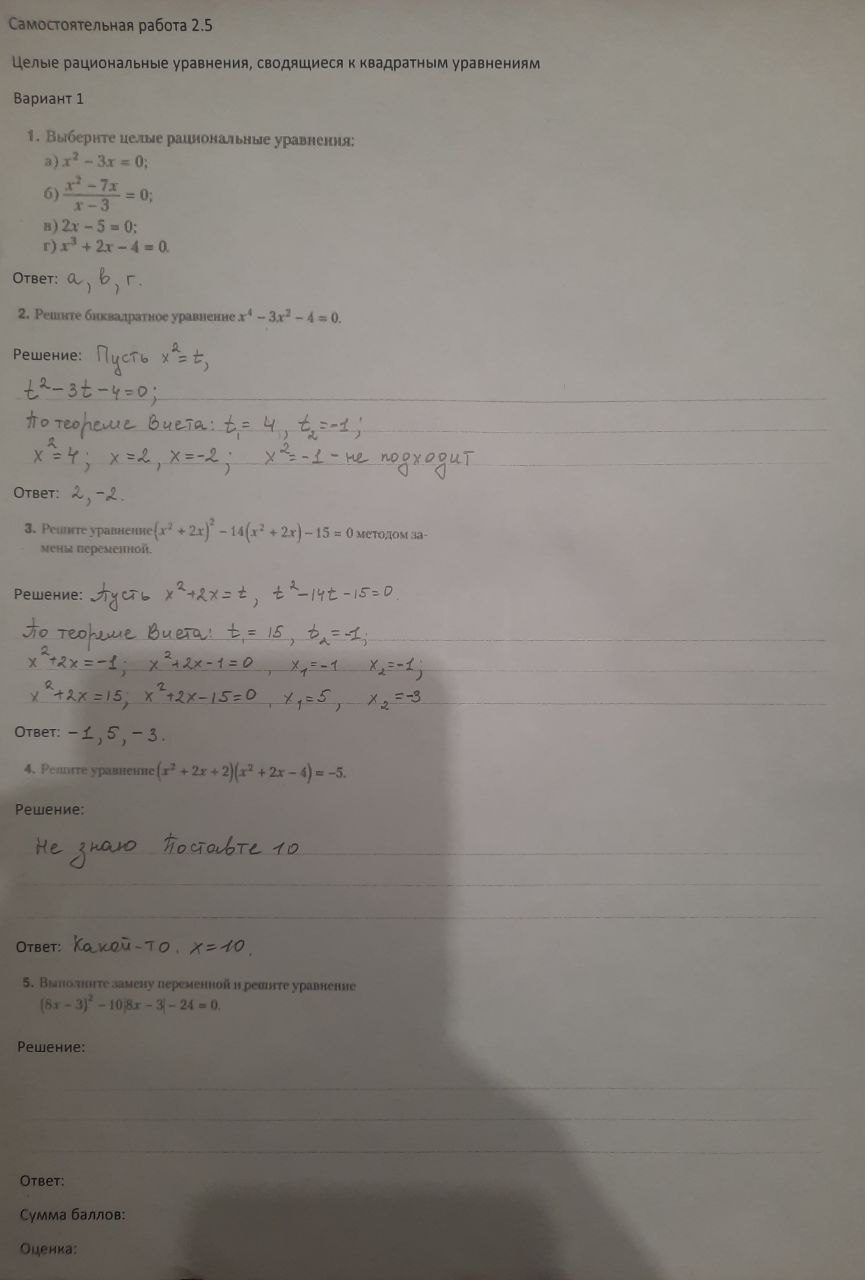 Самостоятельная работа 2.5
Целые рациональные уравнения, сводящиеся к квадратным уравнениям
Вариант 1
1. Выберите целые рациональные уравнения:
а) x² − 3x = 0;
б) (x² − 7x)/(x − 3) = 0;
в) 2x − 5 = 0;
г) x³ + 2x − 4 = 0.
Ответ: а, в, г.
2. Решите биквадратное уравнение x⁴ − 3x² − 4 = 0.
Решение: Пусть x² = t,
t² − 3t − 4 = 0;
По теореме Виета: t₁ = 4, t₂ = −1;
x² = 4; x = 2, x = −2; x² = −1 − не подходит
Ответ: 2, −2.
3. Решите уравнение (x² + 2x)² − 14(x² + 2x) − 15 = 0 методом за-
мены переменной.
Решение: Пусть x² + 2x = t, t² − 14t − 15 = 0.
По теореме Виета: t₁ = 15, t₂ = −1;
x² + 2x = −1; x² + 2x − 1 = 0, x₁ = −1 x₂ = −1;
x² + 2x = 15; x² + 2x − 15 = 0, x₁ = 5, x₂ = −3
Ответ: −1, 5, −3.
4. Решите уравнение (x² + 2x + 2)(x² + 2x − 4) = −5.
Решение:
Не знаю Поставте 10
Ответ: Какой-то. x = 10.
5. Выполните замену переменной и решите уравнение
(8x − 3)² − 10|8x − 3| − 24 = 0.
Решение:
Ответ:
Сумма баллов:
Оценка: